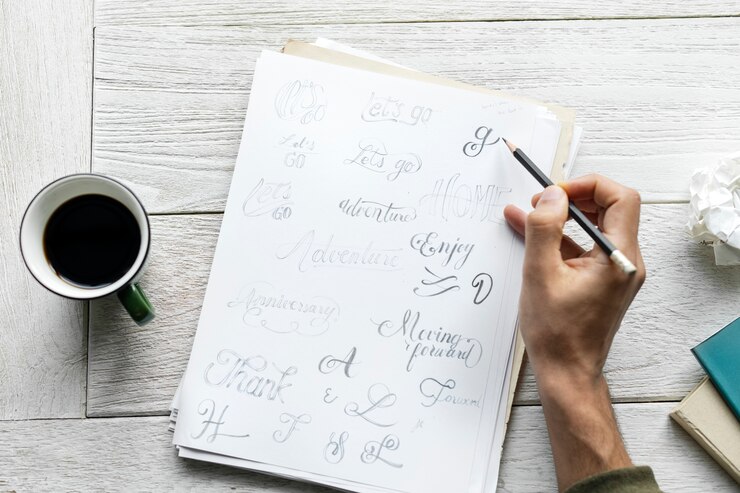 Let's go
let's go
g
Let's
GO
Let's go
Let's
GO
adventure
HOME
Adventure
Enjoy
D
Anniversary
Moving
forward
Thank
A
&
L
Forward
H
F
S
L